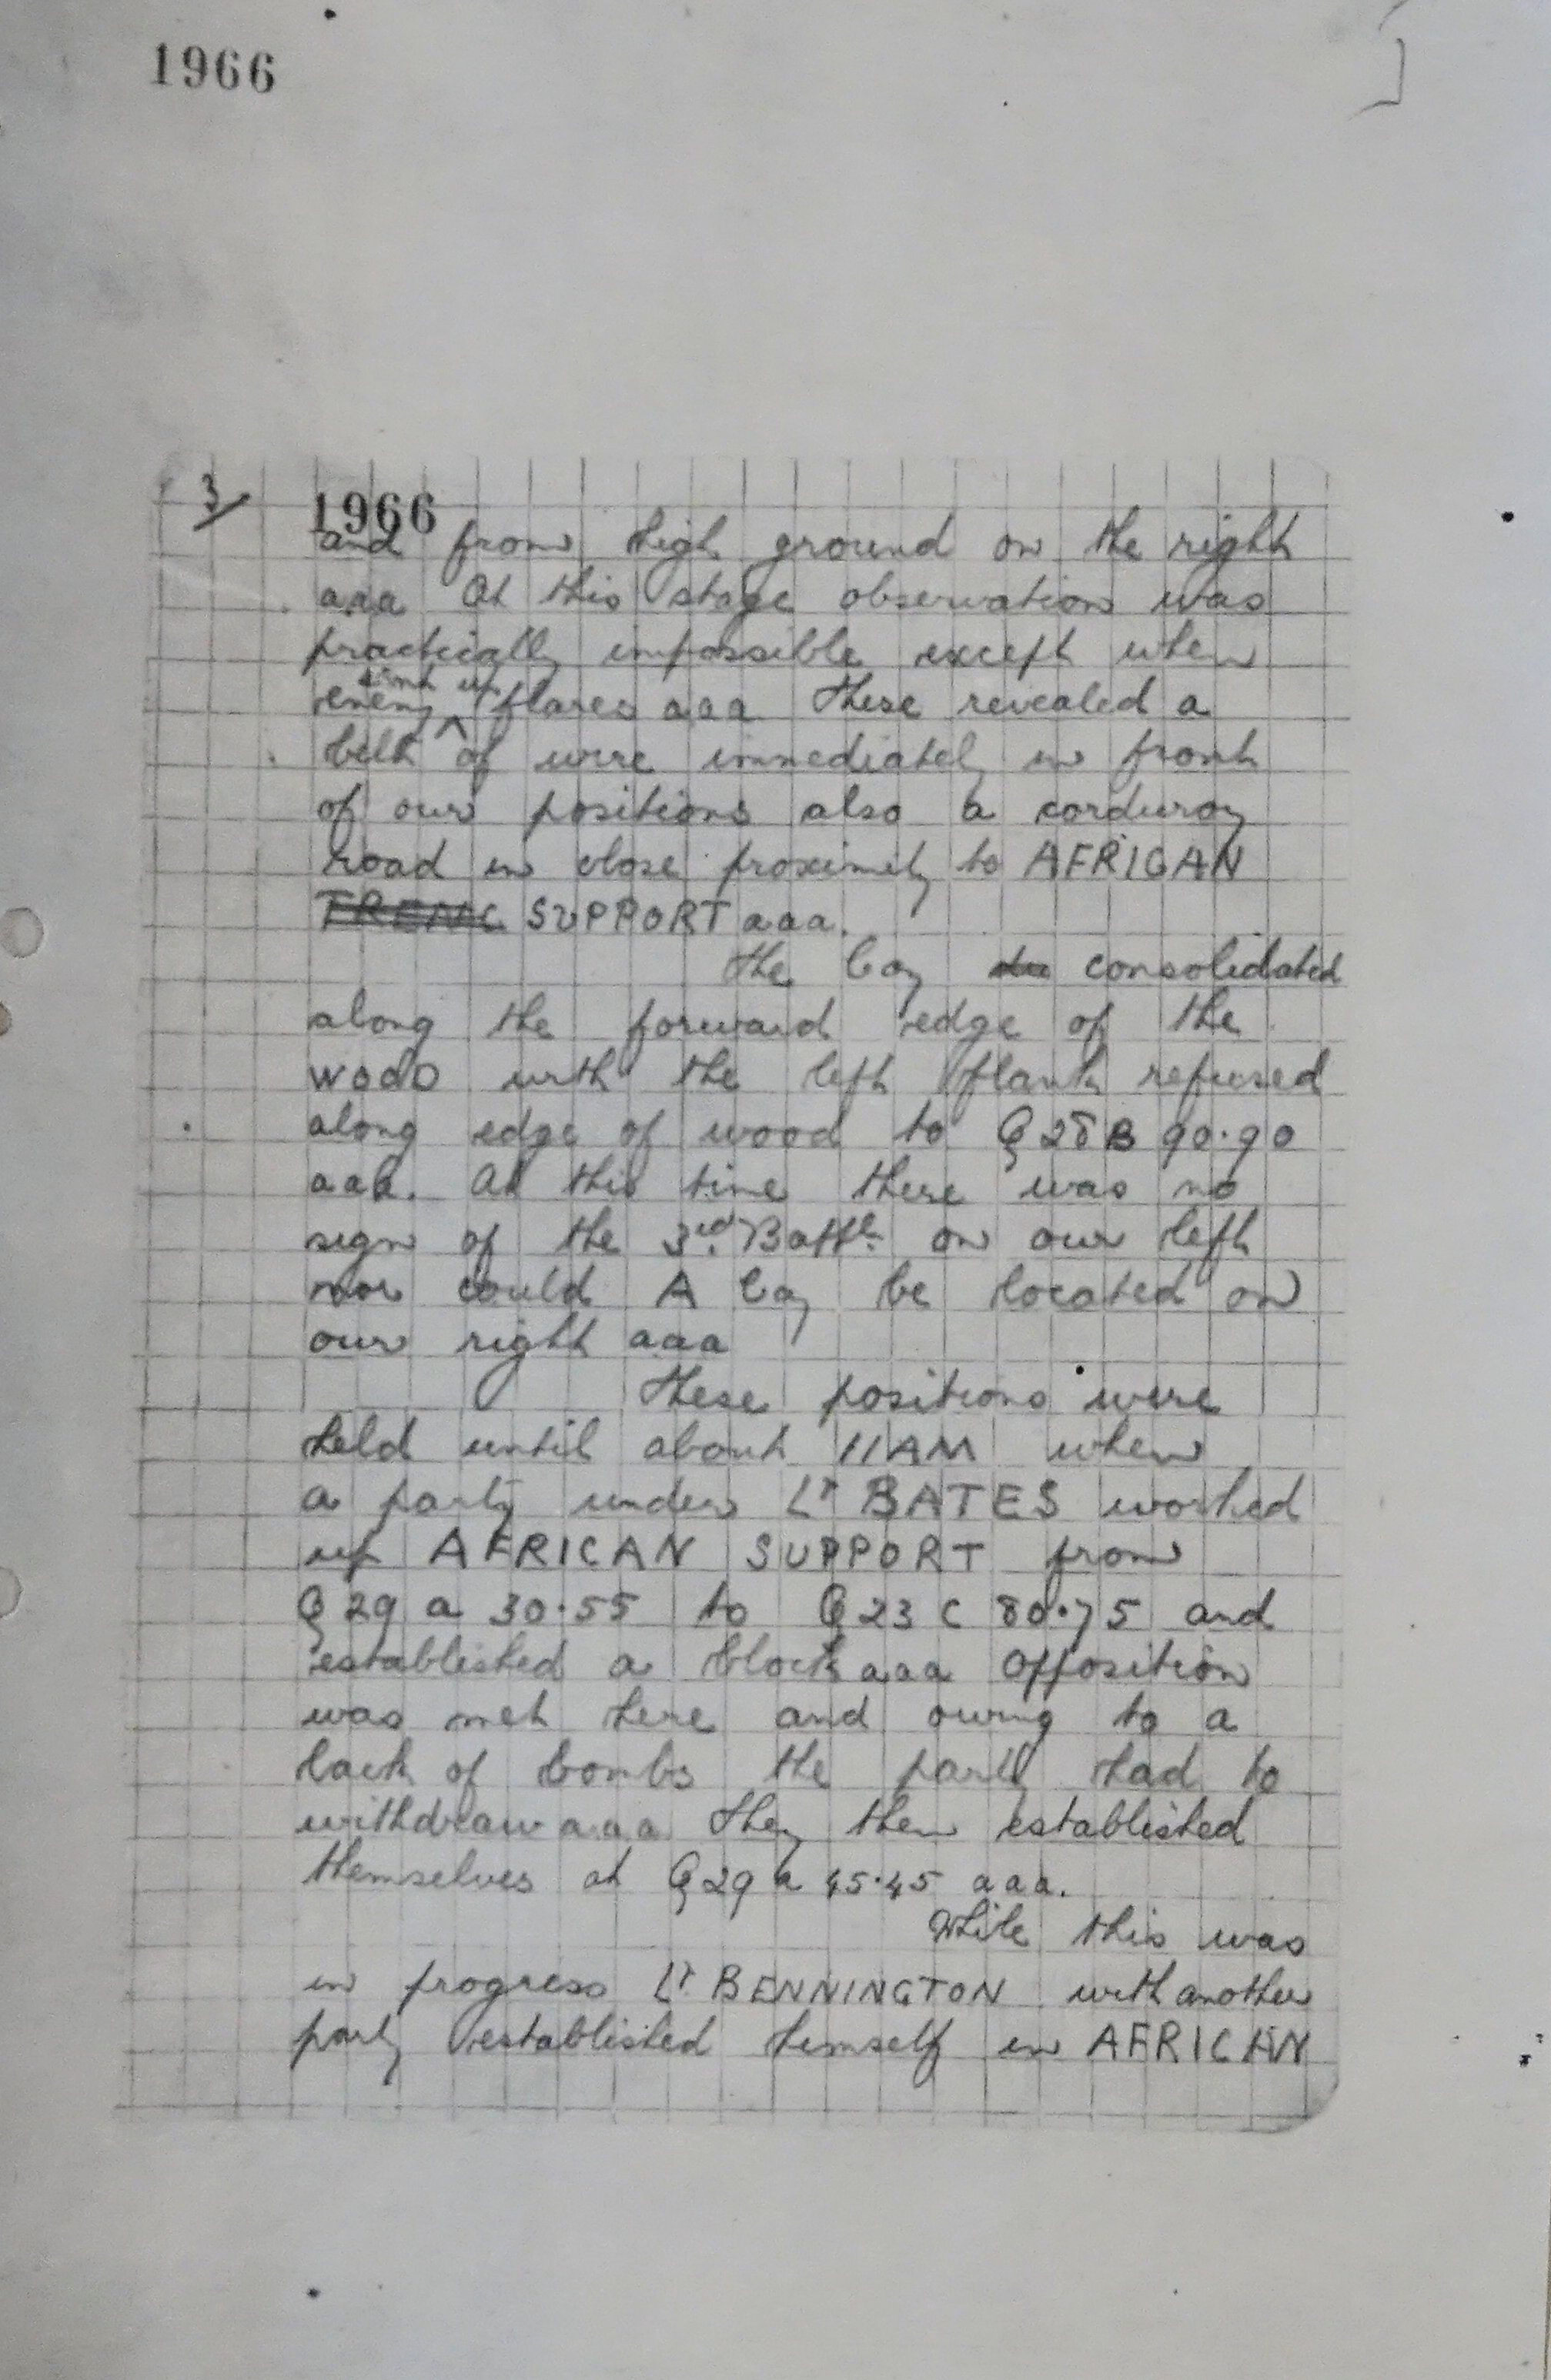 1966
3/ 1966
and from high ground on the right
aaa At this stage observation was
practically impossible except when
sent up
enemy ^ flares aaa These revealed a
belt of wire immediately in front
of our positions also a corduroy
road in close proximity to AFRICAN
TRENC SUPPORT aaa.
The Coy consolidated
along the forward edge of the
WOOD with the left flank refused
along edge of wood to Q28B 90.90
aaa. At this time there was no
sign of the 3rd. Battn. on our left
nor could A Coy be located on
our right aaa
These positions were
held until about 11AM when
a party under Lt BATES worked
up AFRICAN SUPPORT from
Q29 a 30.55 to Q23 C 80.75 and
established a block aaa Opposition
was met here and owing to a
lack of bombs the party had to
withdraw aaa They then established
themselves at Q29 a 45.45 aaa.
While this was
in progress Lt. BENNINGTON with another
party established himself in AFRICAN